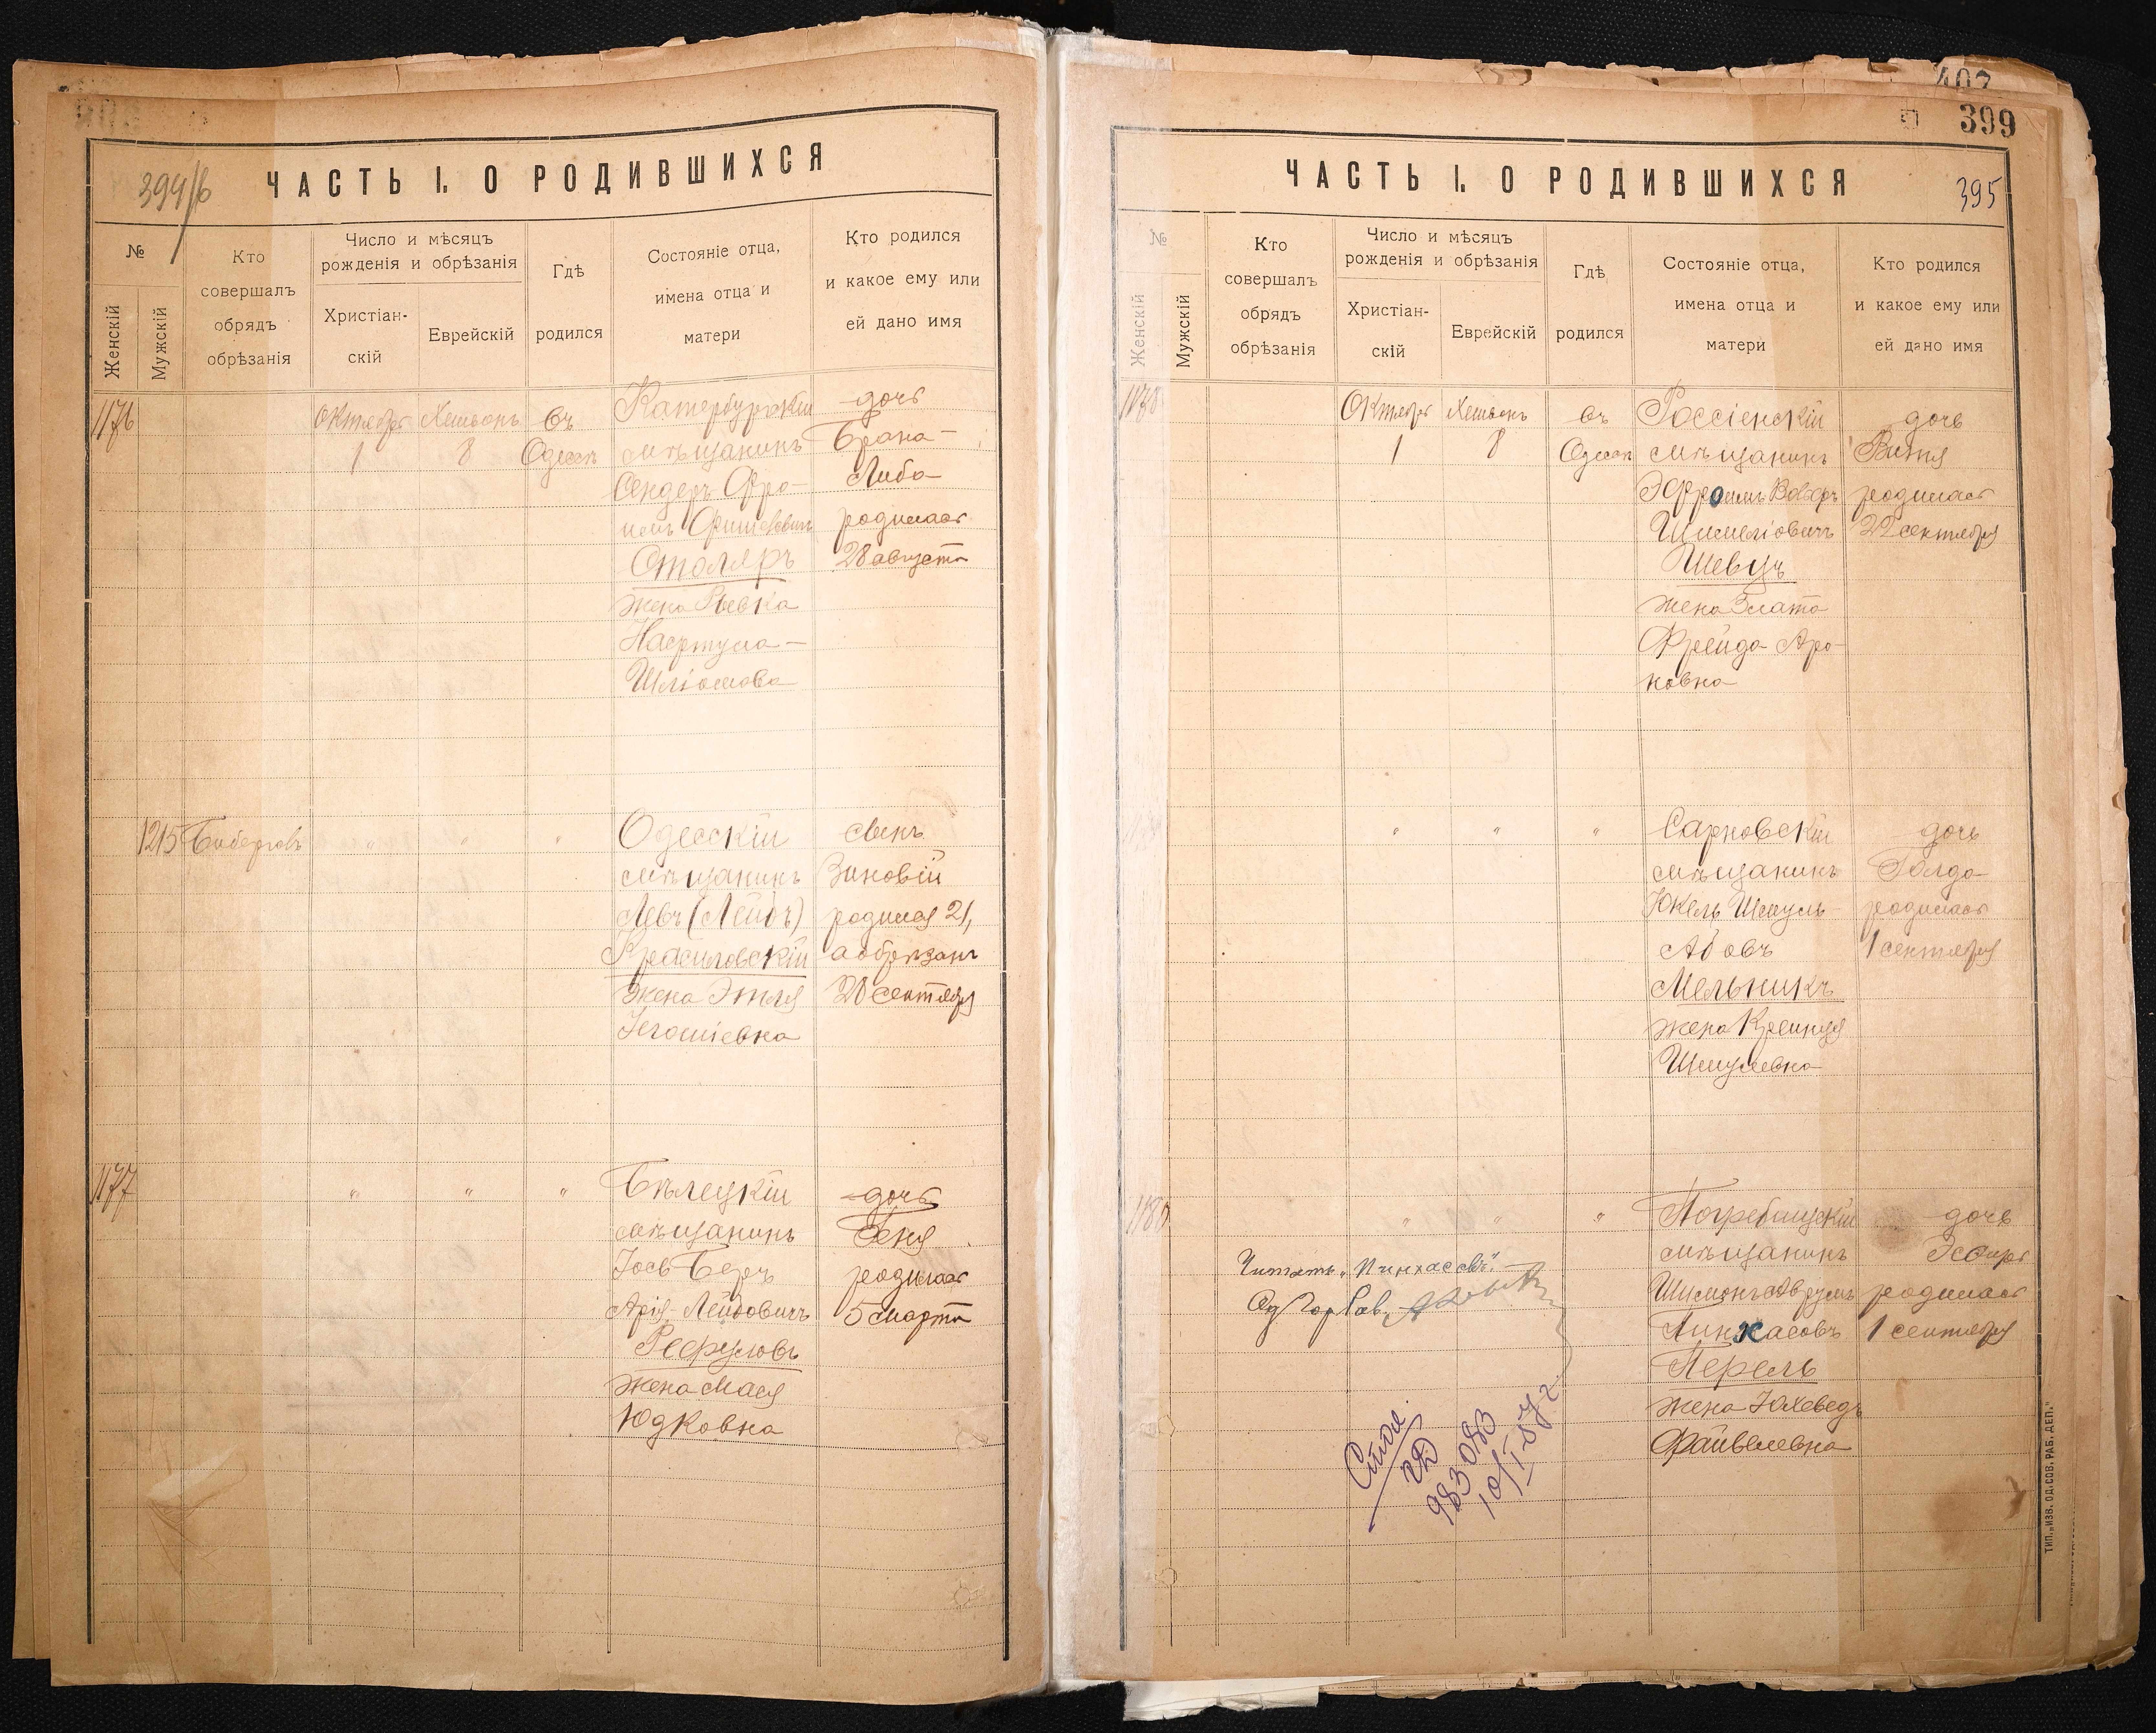 394/б
ЧАСТЬ I. О РОДИВШИХСЯ
№
Женскій
Мужскій
Кто
совершалъ
обрядъ
обрѣзанія
Число и мѣсяцъ
рожденія и обрѣзанія
Христіан-
скій
Еврейскій
Гдѣ
родился
Состояніе отца,
имена отца и
матери
Кто родился
и какое ему или
ей дано имя
1176
Октября
1
Хешвонъ
8
въ
Одессѣ
Катербургскій
мѣщанинъ
Сендеръ Фро-
имъ
Столяръ
жена Ривка
Шліомова
дочь
Брана-
Либа
родилась
28 августа
1215
" " "
Одесскій
мѣщанинъ
Левъ (Лейбъ)
Красиловскій
жена Этля
сынъ
Зиновій
родился 21,
а обрѣзанъ
28 сентября
1177
" " "
Бѣлецкій
мѣщанинъ
Іось Беръ
Арія-Лейбовичъ
Рефуловъ
жена Мася
Юдковна
дочь
Геня
родилась
5 марта
407
399
395
ЧАСТЬ I. О РОДИВШИХСЯ
№
Женскій
Мужскій
Кто
совершалъ
обрядъ
обрѣзанія
Число и мѣсяцъ
рожденія и обрѣзанія
Христіан-
скій
Еврейскій
Гдѣ
родился
Состояніе отца,
имена отца и
матери
Кто родился
и какое ему или
ей дано имя
1178
Октября
1
Хешвонъ
8
въ
Одессѣ
Россіенскій
мѣщанинъ
Эфроимъ
Шмеліовичъ
Швецъ
жена Злата
Фрейда Аро-
новна
дочь
Витя
родилась
22 сентября
" " "
Сарновскій
мѣщанинъ
Юкель Шмуль-
Абовъ
Мельникъ
жена Крейнця
Шмулевна
дочь
Голда
родилась
1 сентября
1180
" " "
Погребищскій
мѣщанинъ
Шимонъ Аврумъ
Пинхасовъ
Перель
жена Юхеведъ
Файвелевна
дочь
Эсфирь
родилась
1 сентября
Читать „Пинхасовъ".
Од Гор Рав.
983083
10/I-57 г.
ТИП. „ИЗВ. ОД. СОВ. РАБ. ДЕП."